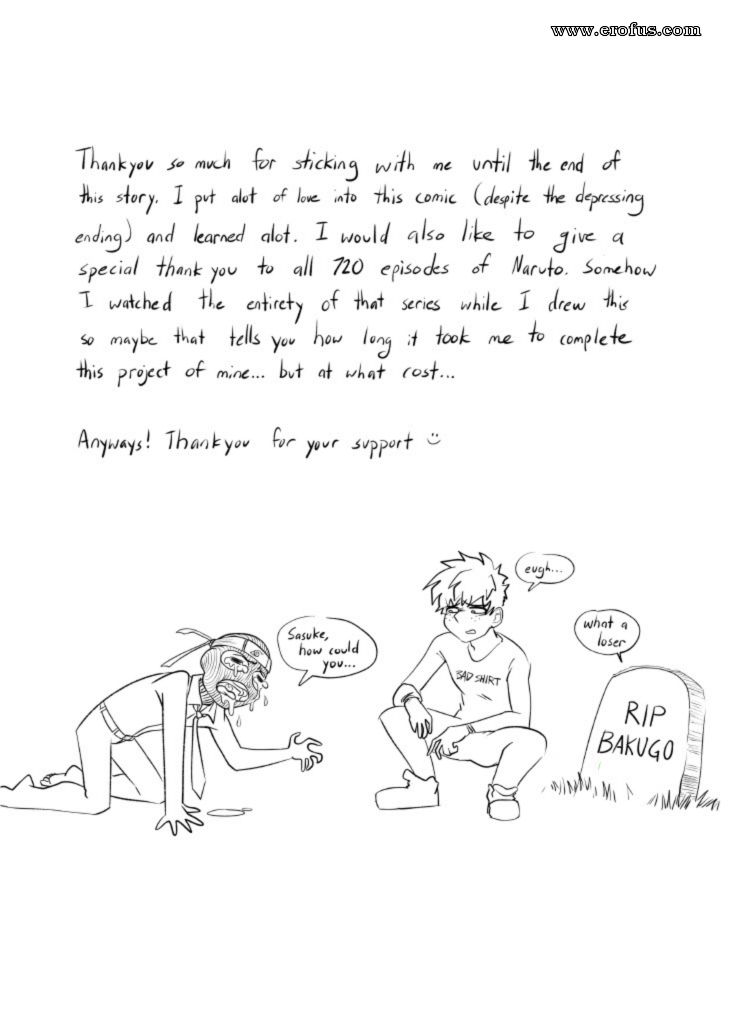 www.erofus.com
Thankyou so much for sticking with me until the end of
this story. I put alot of love into this comic (despite the depressing
ending) and learned alot. I would also like to give a
special thank you to all 720 episodes of Naruto. Somehow
I watched the entirety of that series while I drew this
so maybe that tells you how long it took me to complete
this project of mine... but at what cost...
Anyways! Thankyou for your support :)
Sasuke,
how could
you...
eugh...
BAD SHIRT
what a
loser
RIP
BAKUGO